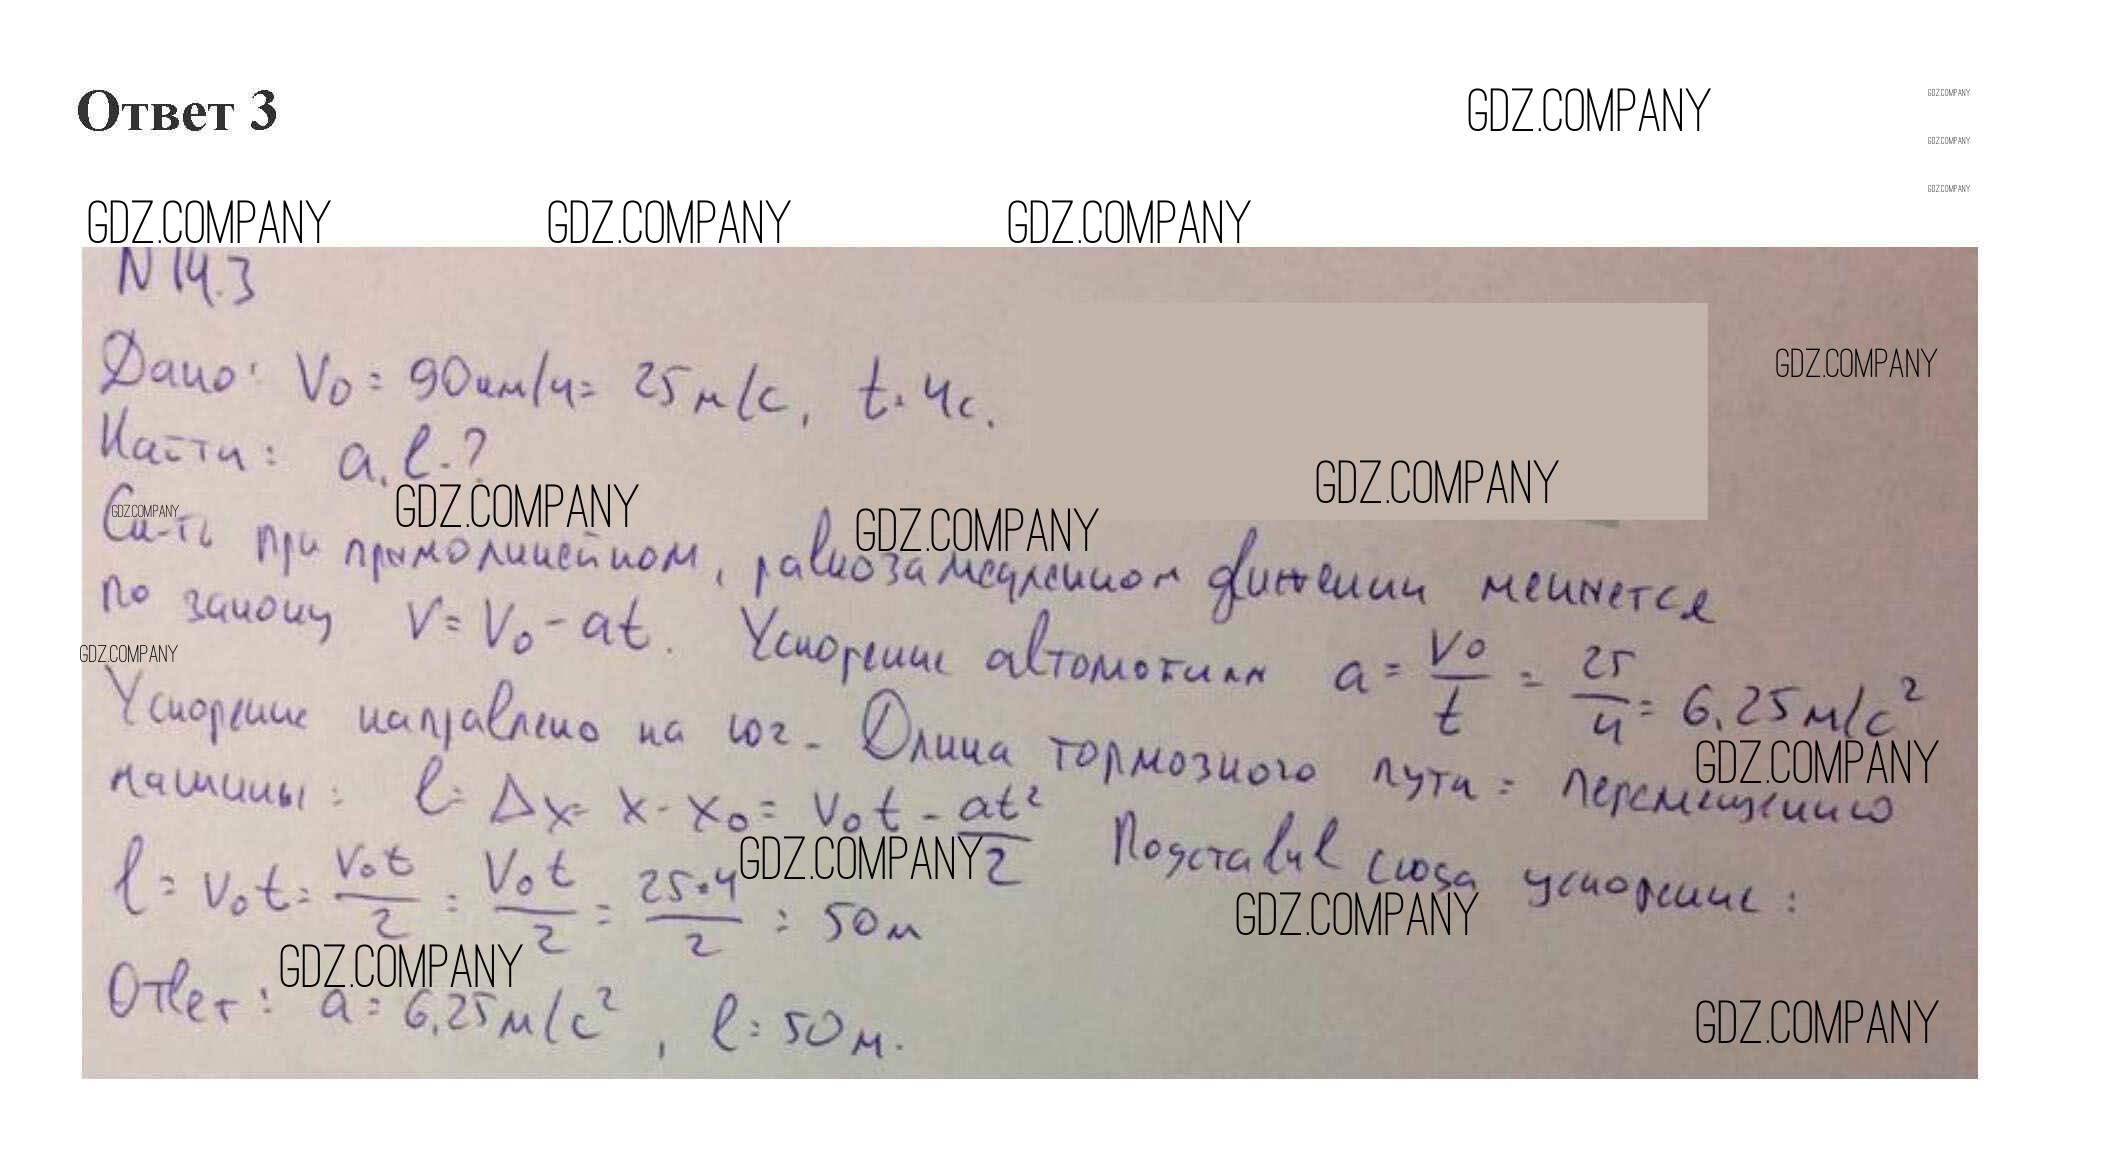 Ответ 3
GDZ.COMPANY
GDZ.COMPANY
GDZ.COMPANY
GDZ.COMPANY
GDZ.COMPANY GDZ.COMPANY GDZ.COMPANY
N 14.3
Дано: V₀ = 90км/ч = 25 м/с, t = 4с.
GDZ.COMPANY
Найти: a, l - ?
GDZ.COMPANY
GDZ.COMPANY
GDZ.COMPANY
GDZ.COMPANY
Ск-ть при прямолинейном, равнозамедленном движении меняется
по закону V = V₀ - at. Ускорение автомобиля a = V₀/t = 25/4 = 6,25 м/с²
GDZ.COMPANY
Ускорение направлено на юг. Длина тормозного пути = перемещению
GDZ.COMPANY
машины: l = Δx = x - x₀ = V₀t - at²/2 Подставив сюда ускорение:
GDZ.COMPANY
GDZ.COMPANY
l = V₀t = V₀t/2 = V₀t/2 = 25•4/2 = 50 м
GDZ.COMPANY
Ответ: a = 6,25 м/с², l = 50 м.
GDZ.COMPANY